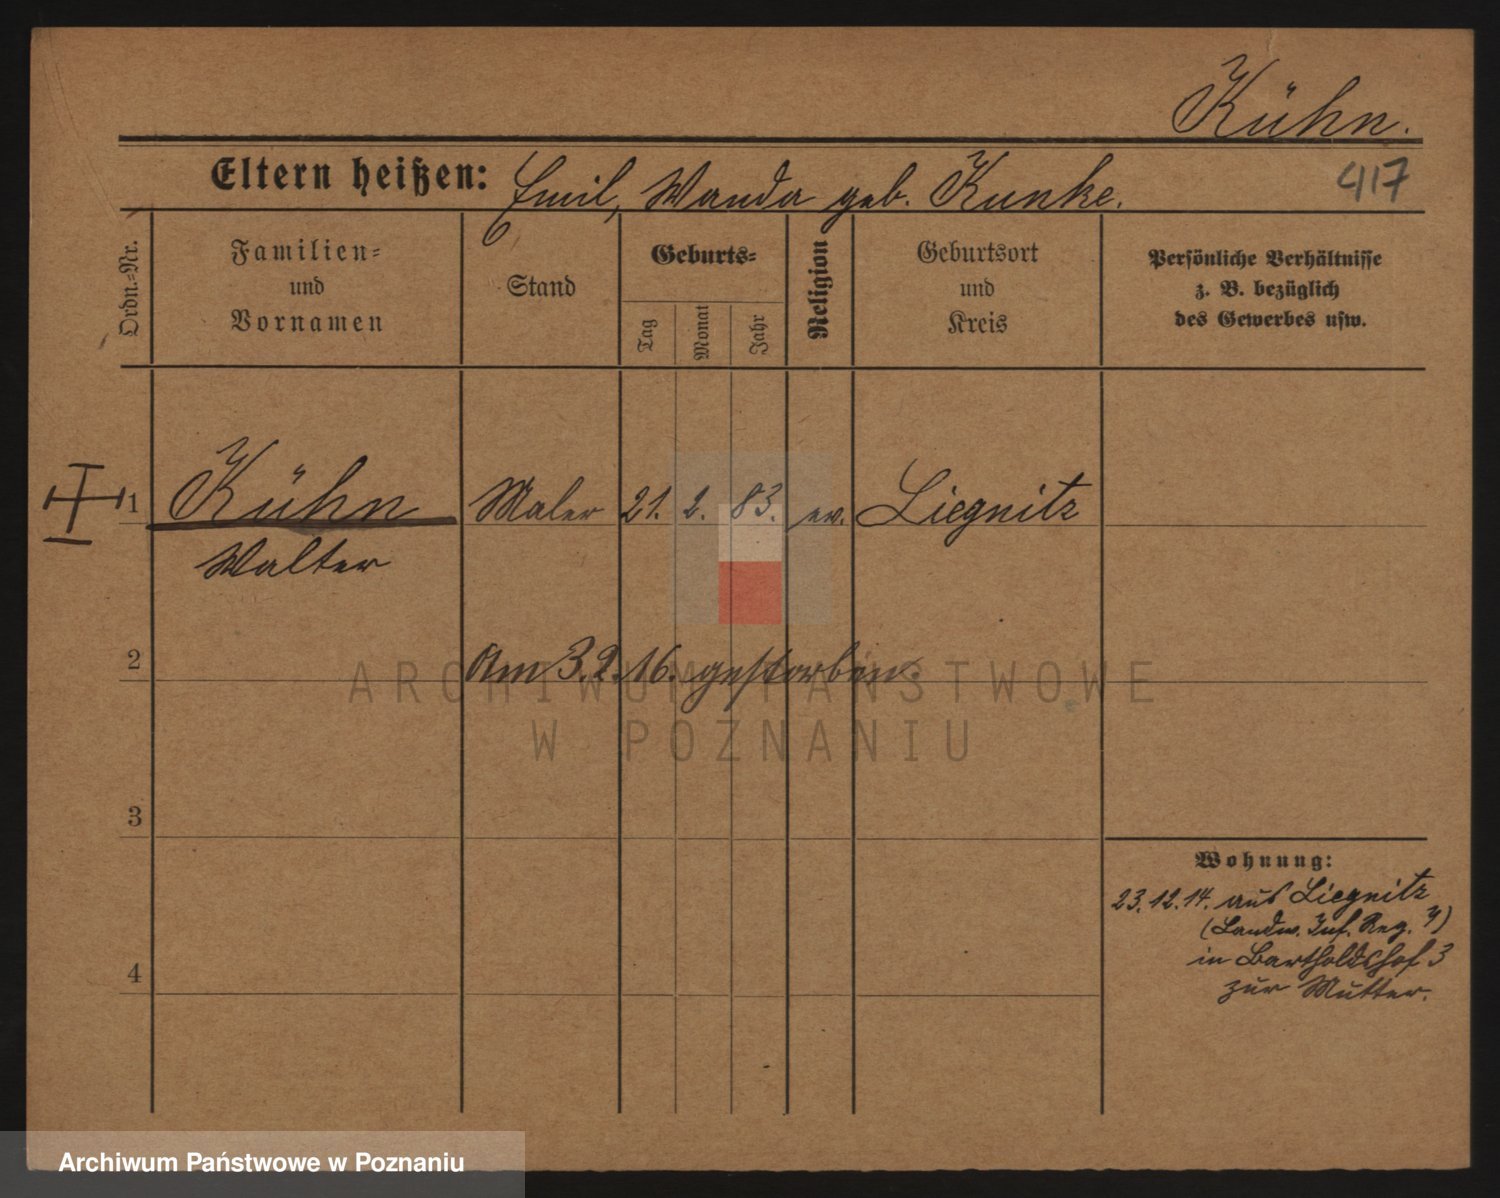 Kühn.
Eltern heißen: Emil, Wanda geb. Kunke.
417
Ordn.=Nr.
Familien=
und
Vornamen
Stand
Geburts=
Tag
Monat
Jahr
Religion
Geburtsort
und
Kreis
Persönliche Verhältnisse
z. B. bezüglich
des Gewerbes usw.
1 Kühn Maler 21. 2. 83. ev. Liegnitz
Walter
2 Am 3.2.16. gestorben.
ARCHIWUM PAŃSTWOWE
W POZNANIU
3
Wohnung:
23.12.14. aus Liegnitz
(Landw. Inf. Reg. 7)
in Bartholdshof 3
zur Mutter.
4
Archiwum Państwowe w Poznaniu